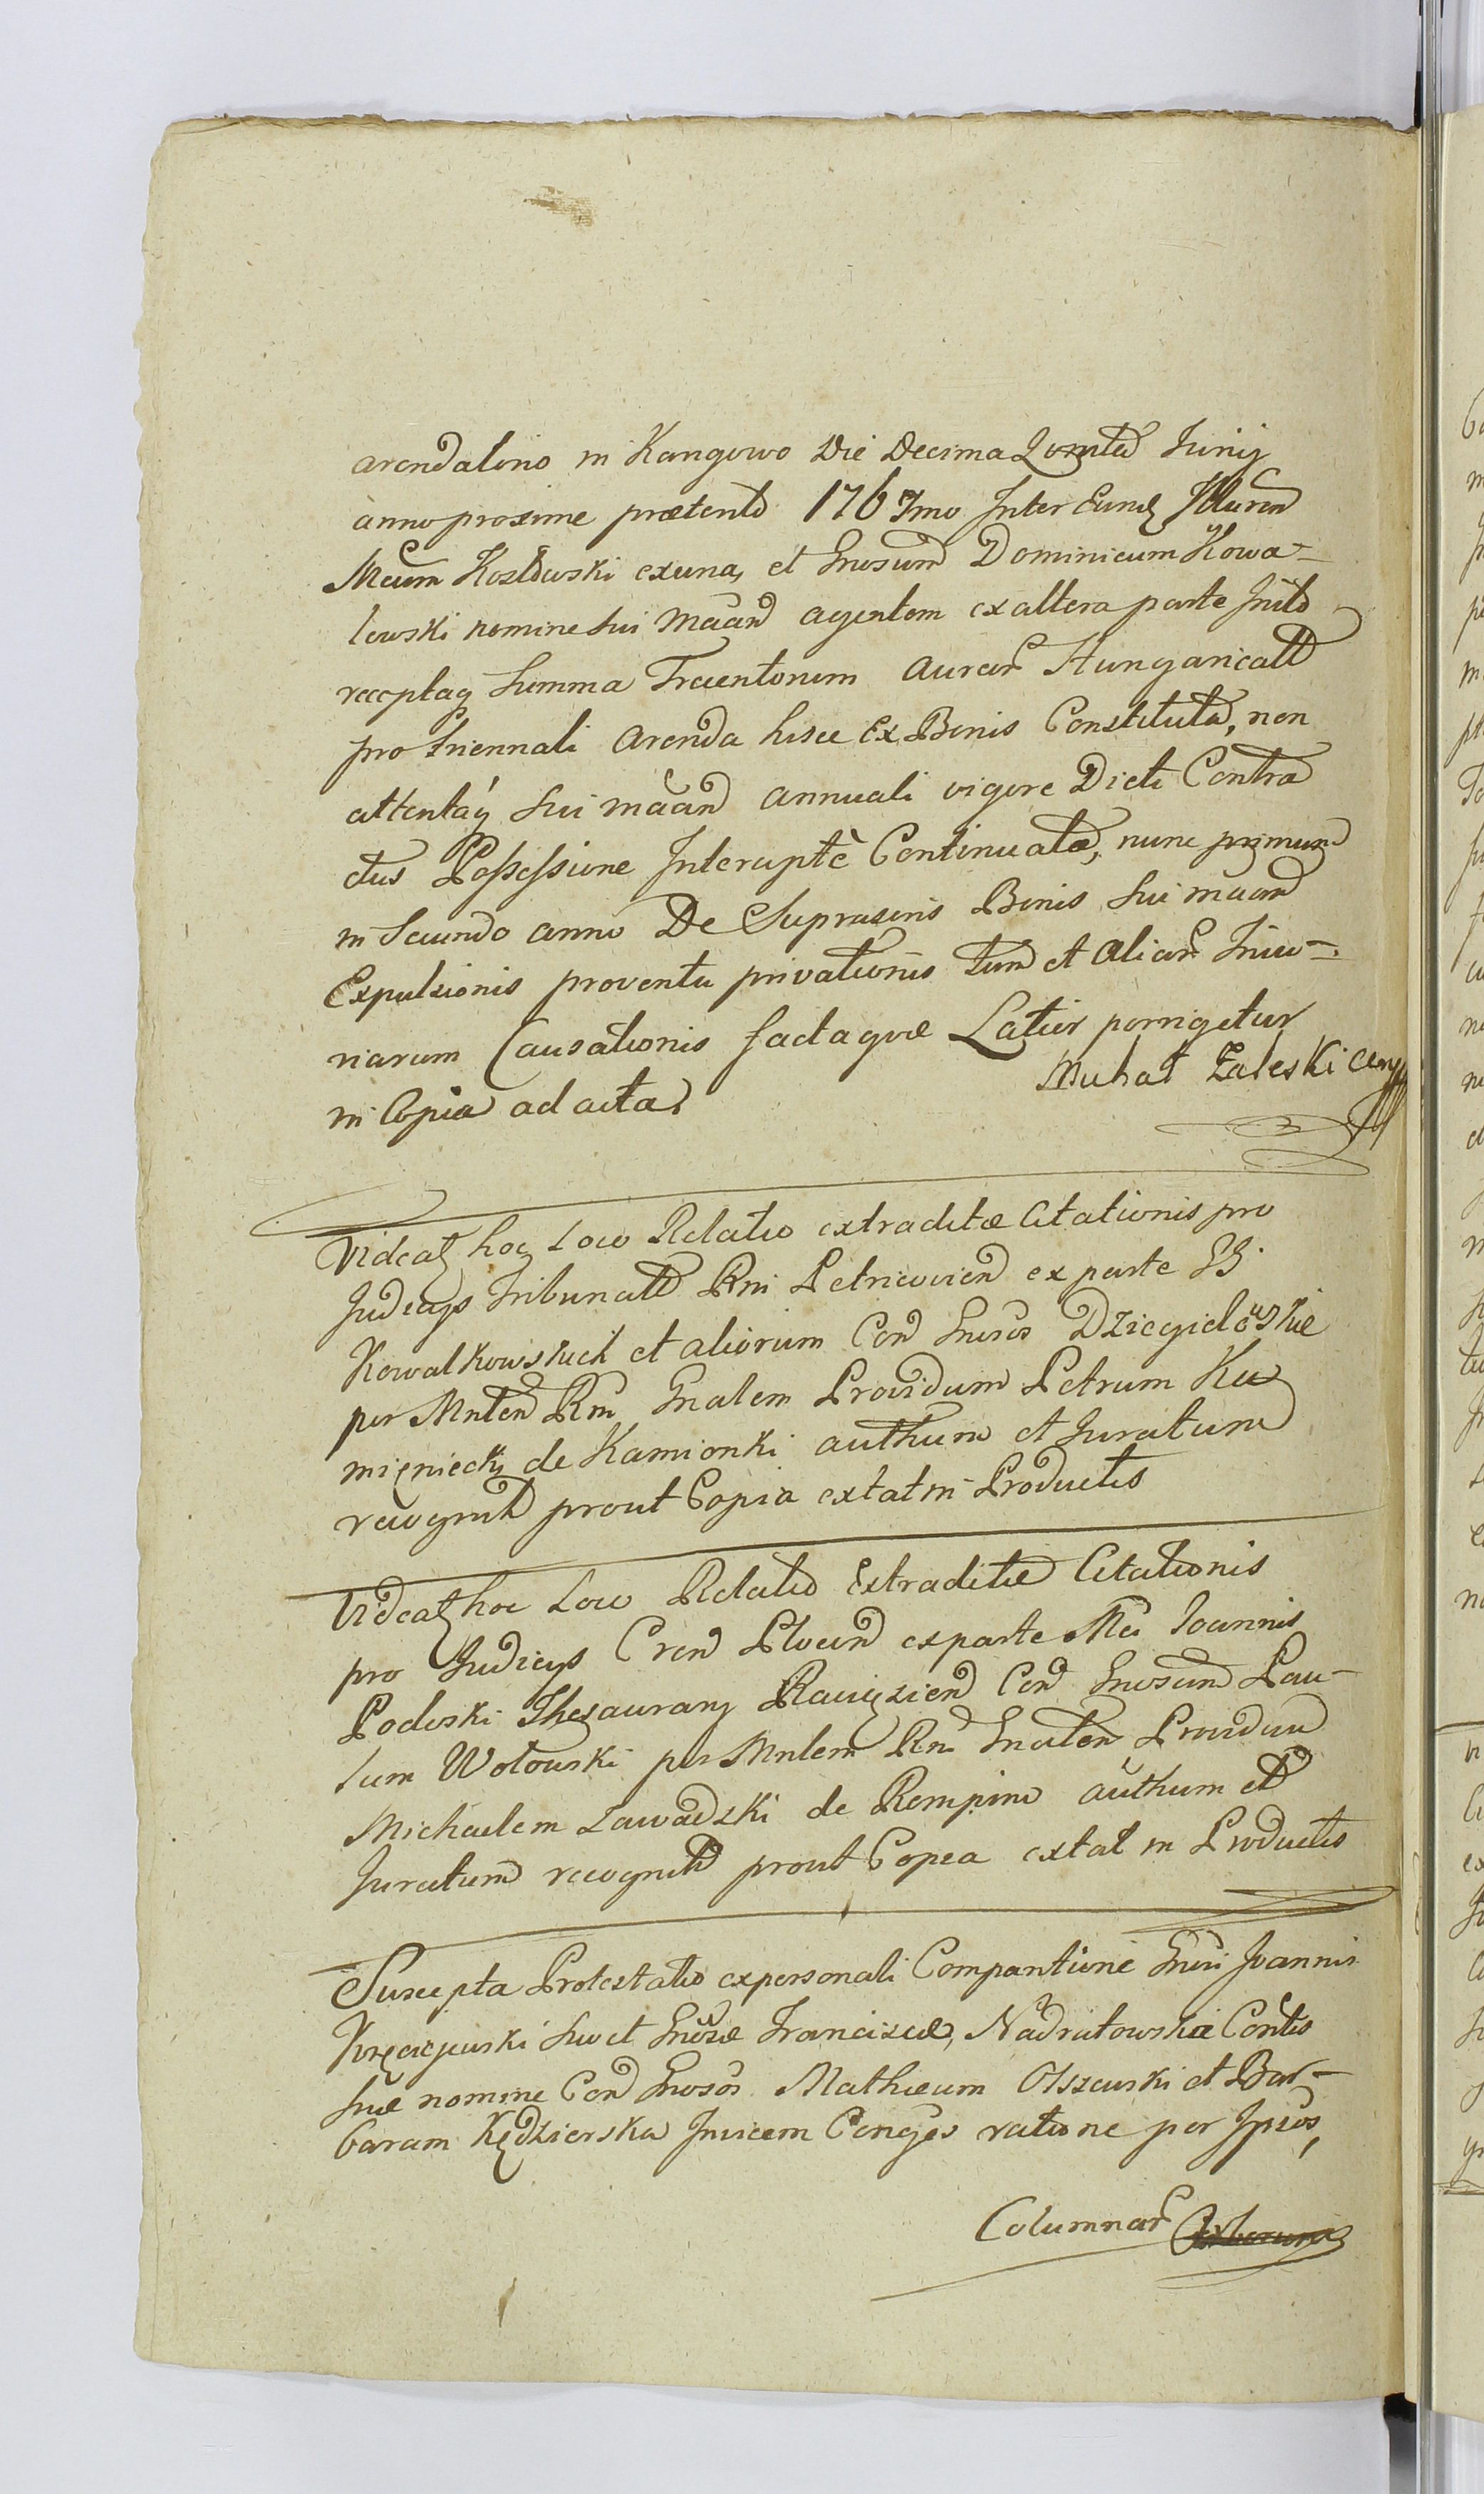 arendatorio in Kangowo Die Decima Quinta Junij
anno proxime præterito 1767mo Inter Eund Illuren
Mcum Kozłowski ex una, et Gnosum Dominicum Kowa-
lewski nomine sui maan agentem ex altera parte Inito
receptaq Summa Trecentorum aureor Hungaricall
pro triennali arenda hisce ex Bonis Constituta, non
attentaq sui maan annuali vigore Dicti Contra
ctus Possessione Interrupte Continuata, nunc primum
in Secundo anno De Suprascris Bonis sui maan
Expulsionis proventu privationis tum et alior Iniu-
riarum Causationis facta quæ Latior porrigetur
in Copia ad acta.
Michał Zaleski
Videat hoc Loco Relatio extraditæ Citationis pro
Judicys Tribunall Rni Petricovien ex parte GG
Kowalkowskich et aliorum Con Gnosos Dziegielewskie
per Mnlen Rni Gnalem Providum Petrum Ka
mieniecki de Kamionki authum et Juratum
recognita prout Copia extat in Productis
Videat hoc Loco Relatio Extraditæ Citationis
pro Judicys Cren Plocen ex parte Mci Joannis
Podoski Thesaurary Raciązien Con Gnosum Pau-
lum Wołowski per Mnlem Rni Gnalem Providum
Michaelem Zawadzki de Rempino authum et
Juratum recognita prout Copia extat in Productis
Suscepta Protestatio ex personali Comparitione Gnosi Joannis
suo et Gnosæ Franciscæ Nadratowskie Contis
suæ nomine Con Gnosos Mathæum Olszewski et Bar-
baram Kędzierska Invicem Conges ratione per Ipsos,
Columnar